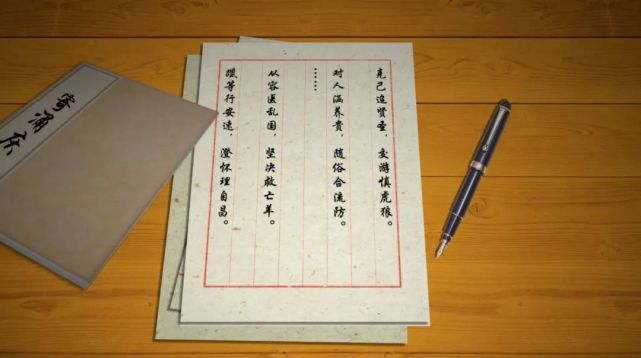 克己進贤圣,交游慎虎狼。
对人涵养贵,随俗合流防。
……
从容医乱国,坚决救亡羊。
躐等行安速,澄怀理自昌。
寄涌庆